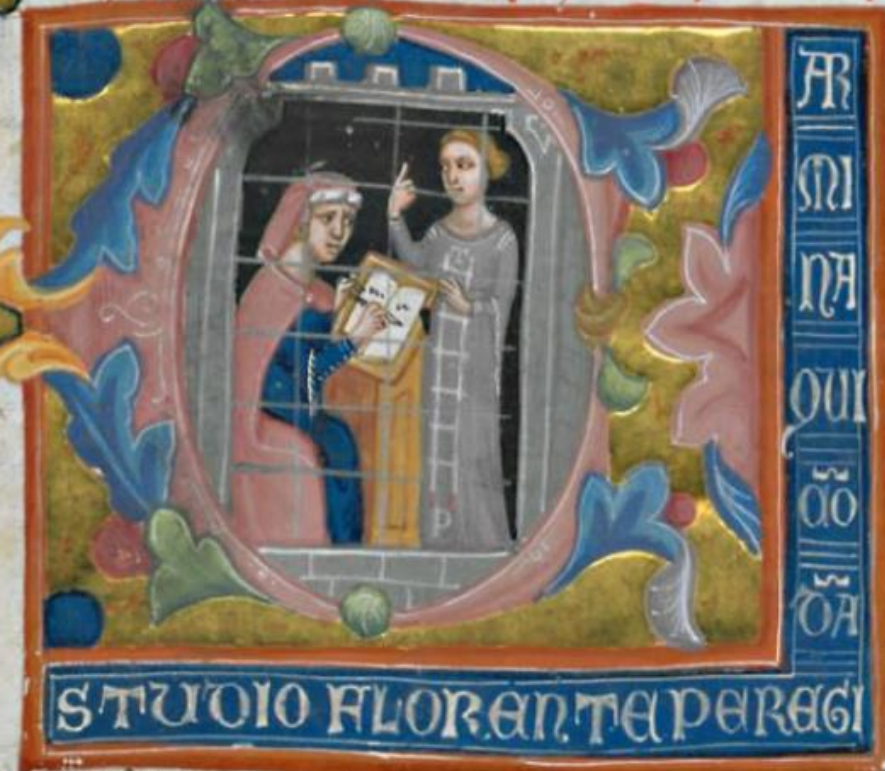 C
AR
MI
NA
QUI
QO̅
DA̅
P
STUDIO FLORENTE PEREGI